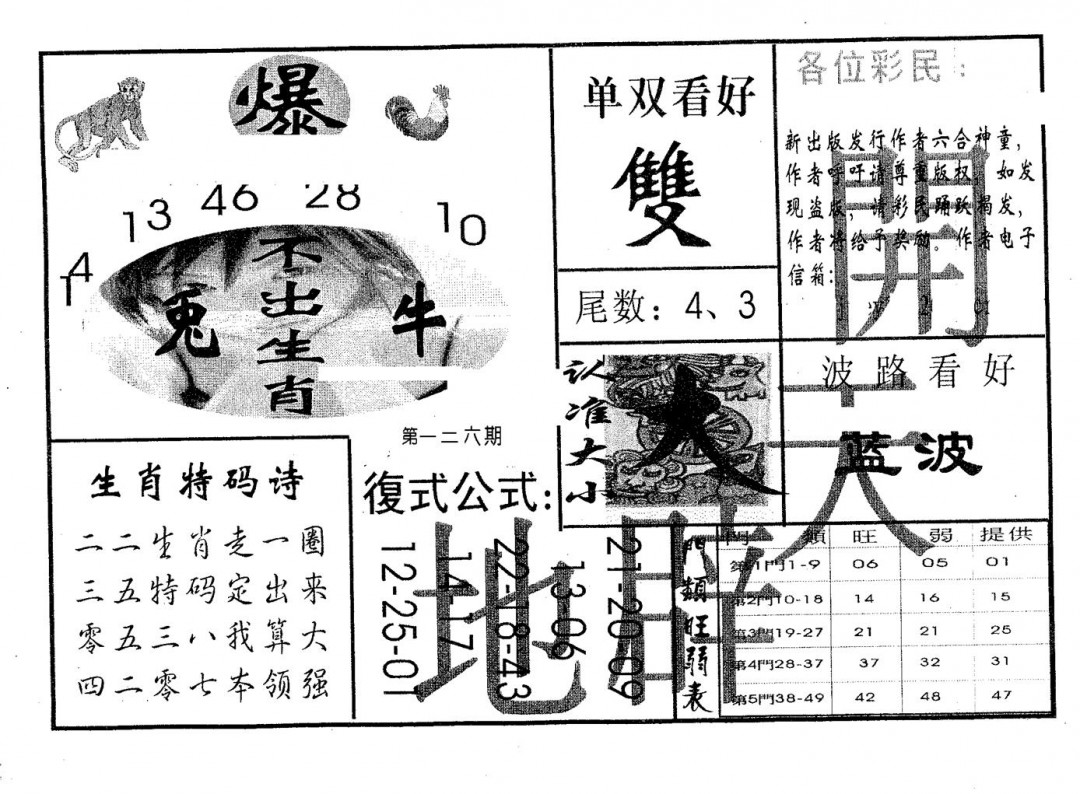 爆
14 13 46 28 10
不出生肖
兔 牛
第一二六期
单双看好
雙
尾数：4、3
各位彩民：
新出版发行作者六合神童，
作者呼吁请尊重版权，如发
现盗版，请彩民踊跃揭发，
作者将给予奖励。作者电子
信箱：
開
天
地
认准大小
大
波路看好
蓝波
生肖特码诗
二二生肖走一圈
三五特码定出来
零五三八我算大
四二零七本领强
復式公式：
12-25-01
14-17
22-18-43
13-06
21-20-09
門類旺弱表
門類 旺 弱 提供
第1門1-9 06 05 01
第2門10-18 14 16 15
第3門19-27 21 21 25
第4門28-37 37 32 31
第5門38-49 42 48 47